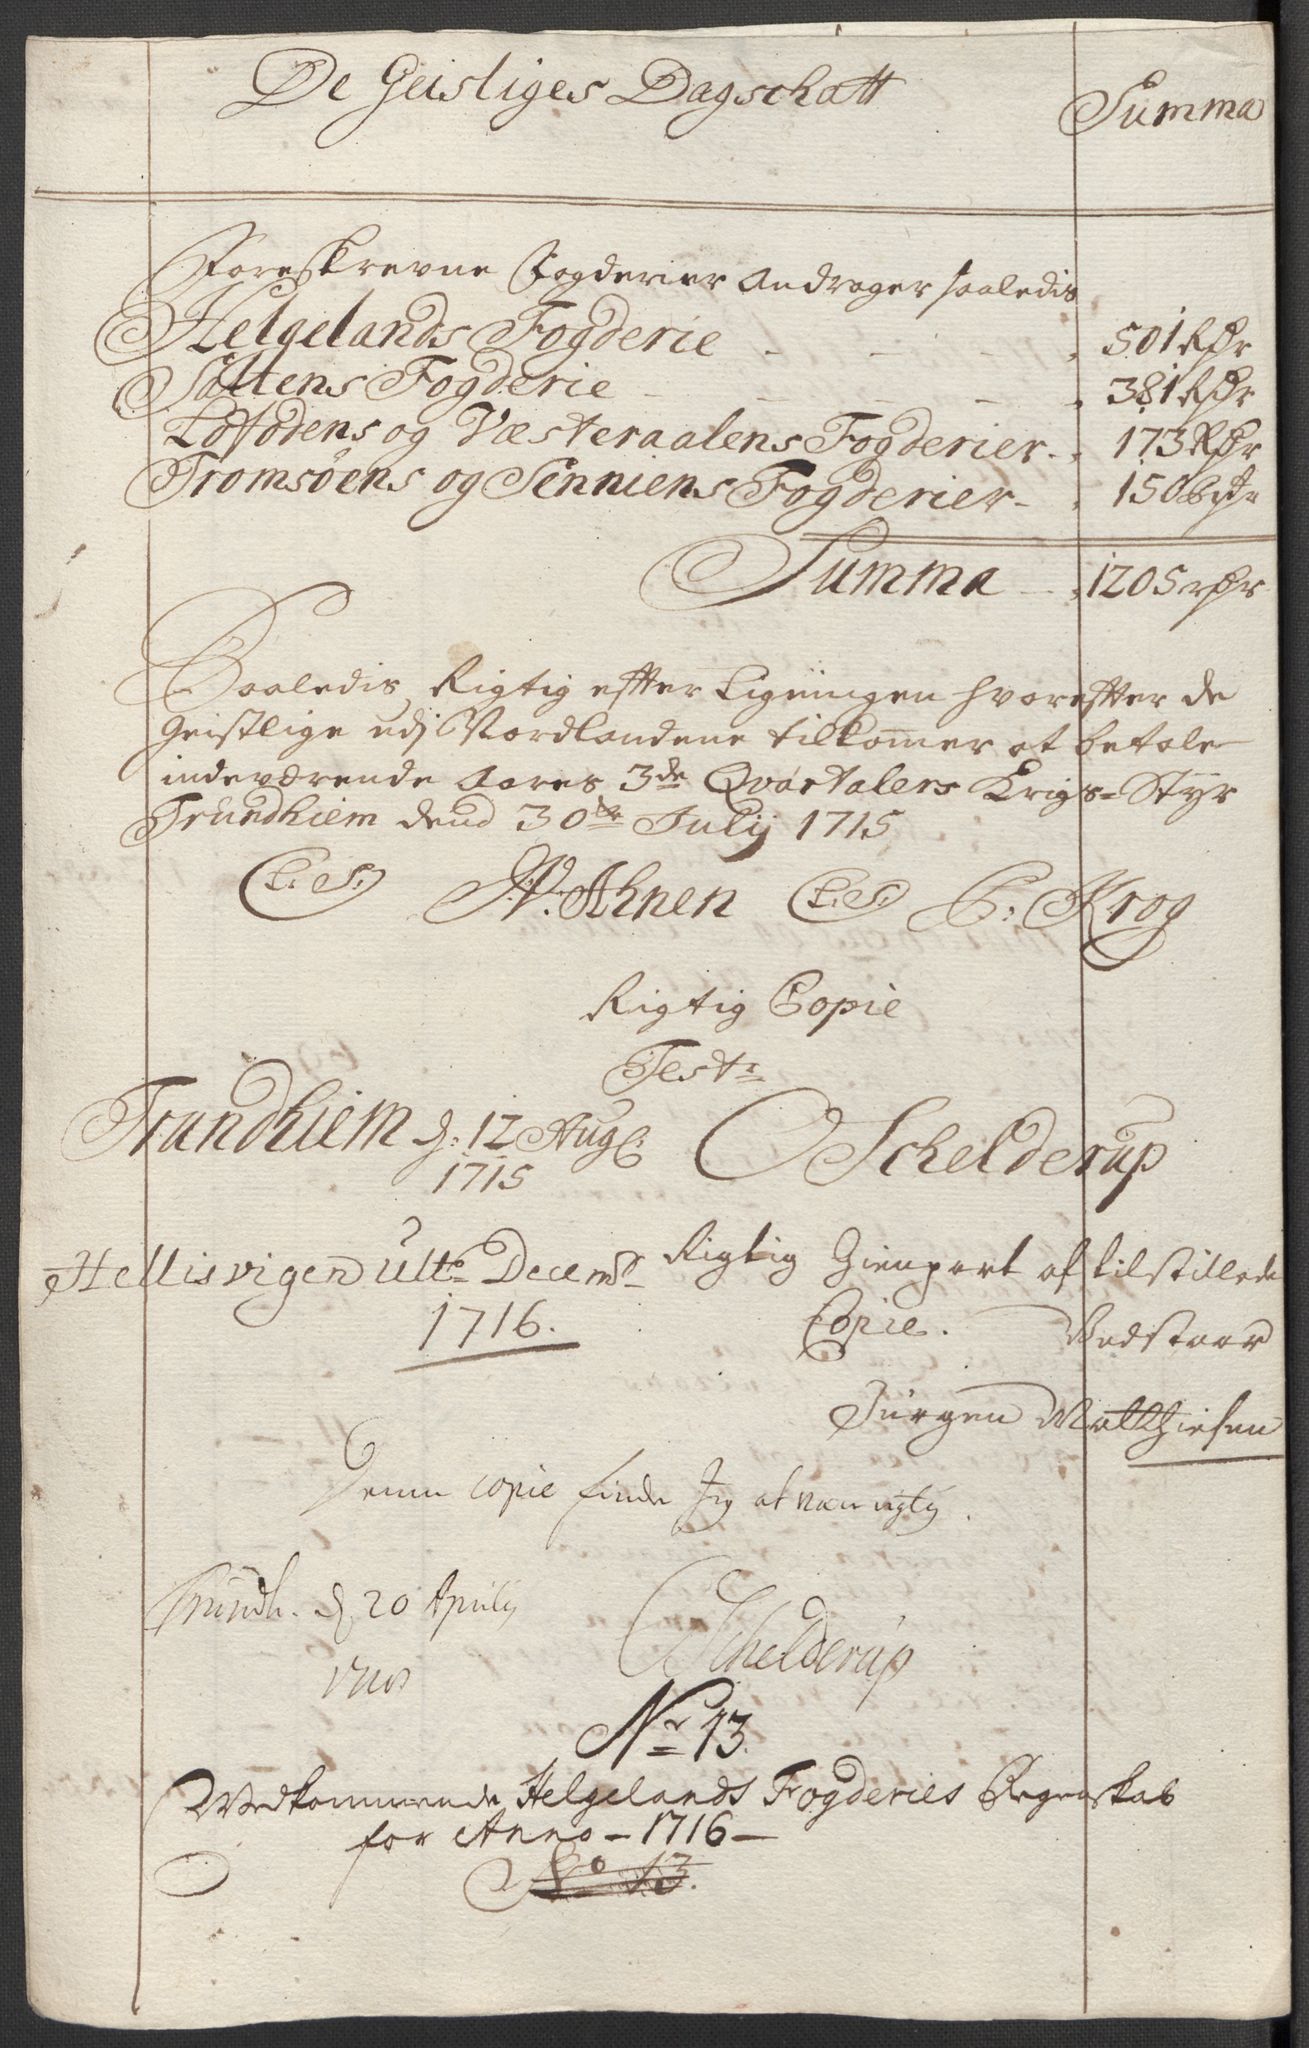 De Geistliges Dagschatt
Summa
Foreskrevne Fogderier Andrager saaledis
Helgelands Fogderie - - - - 501 Rdr
Saltens Fogderie - - - - 381 Rdr
Lofodens og Væsteraalens Fogderier - 173 Rdr
Tromsøens og Senniens Fogderier - 150
Summa - 1205 rdr
Saaledis Rigtig effter Ligningen hvoreffter de
Geistlige udj Nordlandene tilkommer at betale
indeværende Aares 3de Qvartalers Krigs=Styr
Trundhiem dend 30te Julij 1715
(L.S.) V: Ahnen (L.S.) P: Krog
Rigtig Copie
Test:
Trundhiem d: 12 Aug:
1715
Schelderup
Hellisvigen Ult: Decemb:
1716.
Rigtig Gienpart af tilstillede
Copie. Vedstaar
Jürgen Matthiesen
Denne copie finder Jeg at være rigtig.
Trundh. d 20 Aprilij
Schelderup
Nr 13.
Vedkommende Helgelands Fogderies Regenskab
for Anno - 1716 -
No 13.